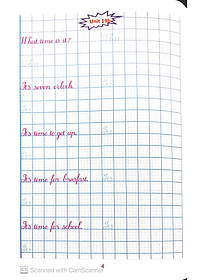 Unit 19
What time is it?
Its seven o'clock.
Its time to get up.
Its time for breafast.
Its time for school.
4
CS Scanned with CamScanner